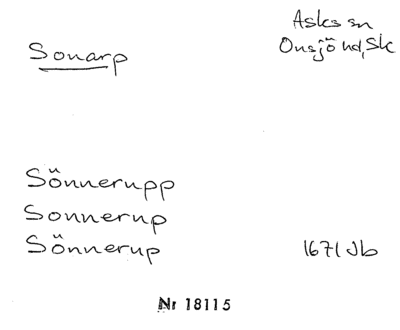 Asks sn
Sonarp Onsjö hd, Sk
Sönnerupp
Sonnerup
Sönnerup 1671 Jb
Nr 18115